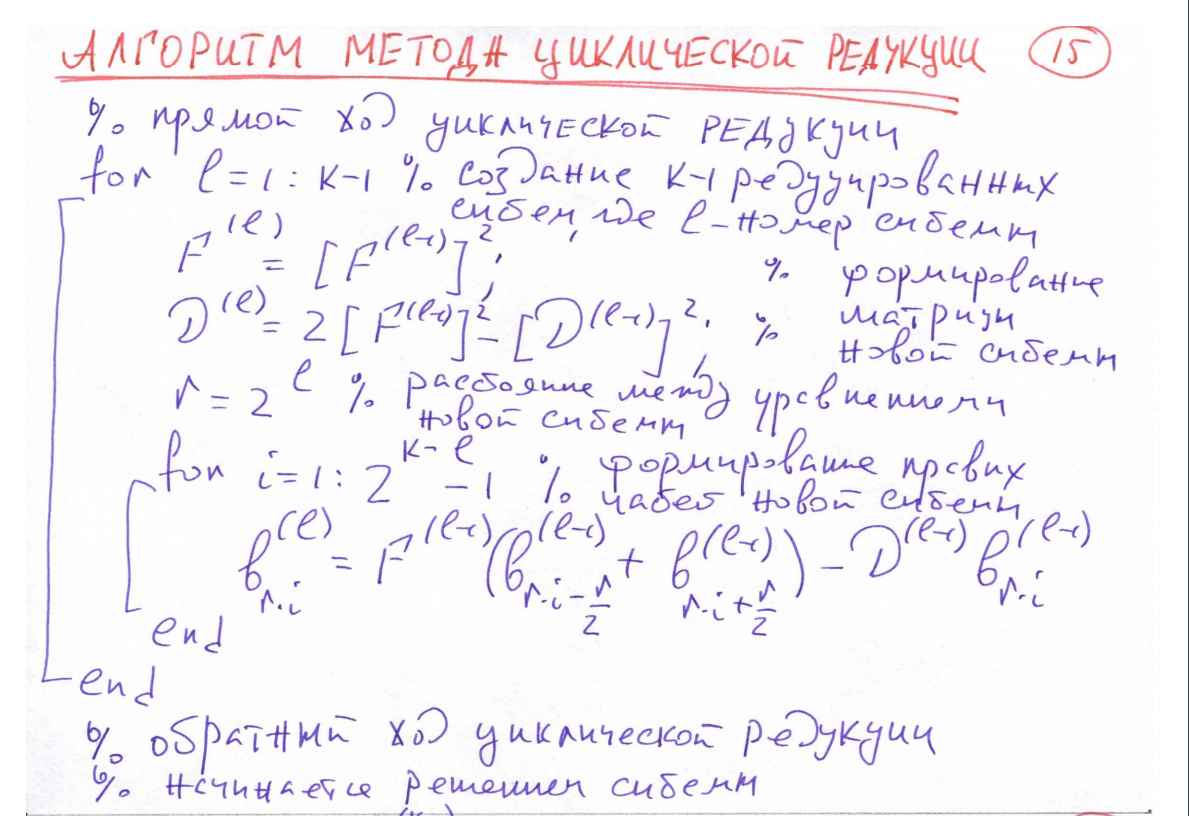 АЛГОРИТМ МЕТОДА ЦИКЛИЧЕСКОЙ РЕДУКЦИИ (15)
% прямой ход циклической РЕДУКЦИИ
for l=1:K-1 % создание K-1 редуцированных
систем, где l-номер системы
F^(l) = [F^(l-1)]^2; % формирование
D^(l) = 2[F^(l-1)]^2 - [D^(l-1)]^2; % матрицы
новой системы
r = 2^l % расстояние между уравнениями
новой системы
for i=1:2^(K-l) -1 % формирование правых
частей новой системы
b_(r·i)^(l) = F^(l-1)(b_(r·i-r/2)^(l-1) + b_(r·i+r/2)^(l-1)) - D^(l-1) b_(r·i)^(l-1)
end
end
% обратный ход циклической редукции
% начинается решением системы